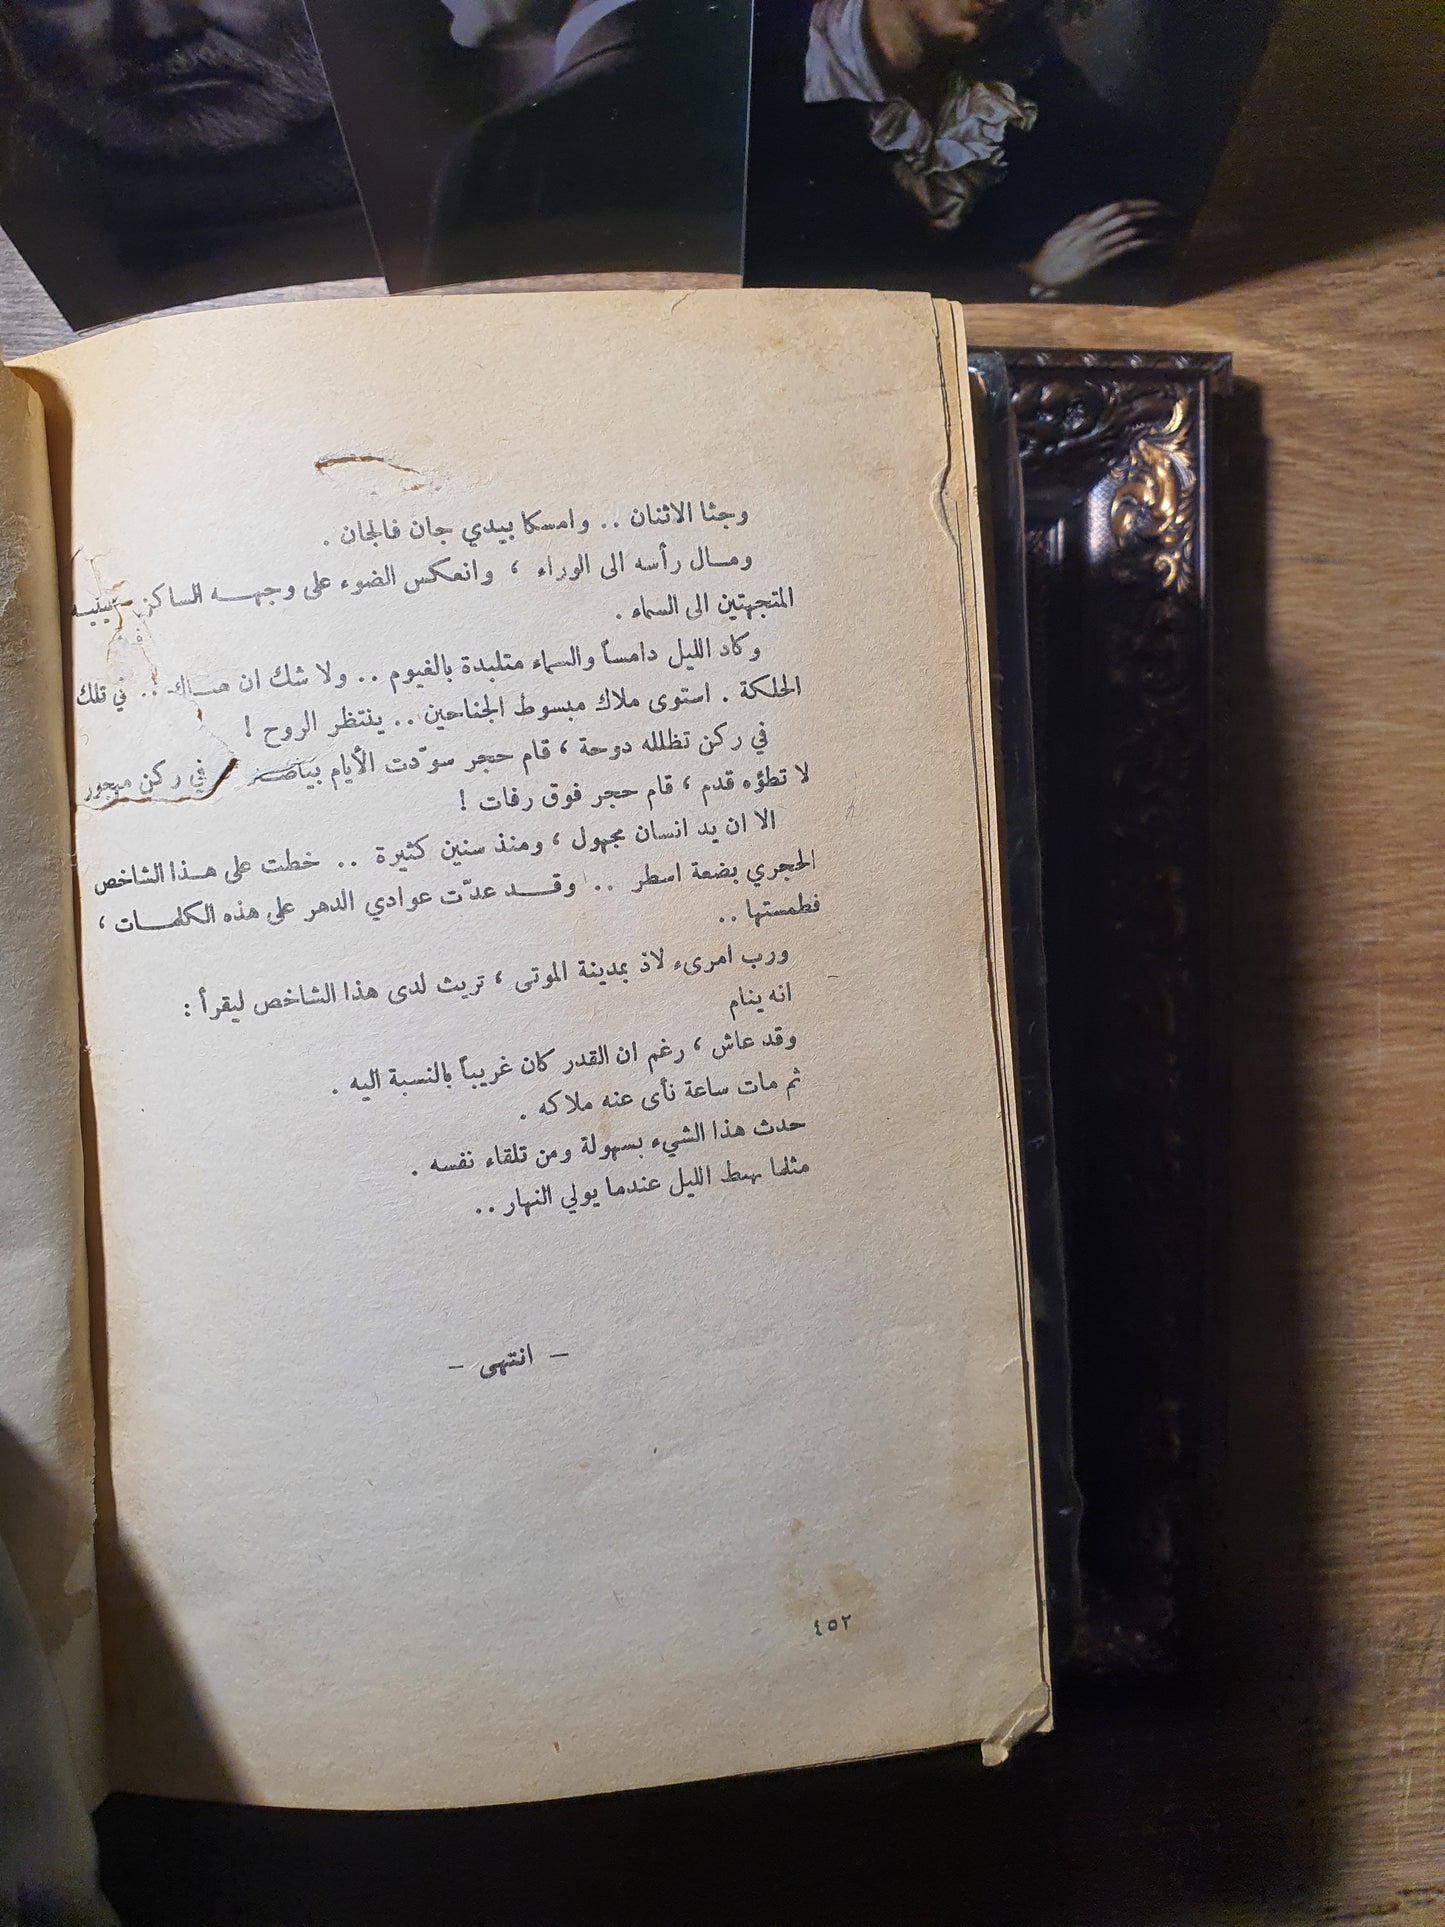 وجثا الاثنان .. وامسكا بيدي جان فالجان .
ومال رأسه الى الوراء ، وانعكس الضوء على وجهه
المتجهتين الى السماء .
وكاد الليل دامساً والسماء متلبدة بالغيوم .. ولا شك ان هناك .. في تلك
الحلكة . استوى ملاك مبسوط الجناحين .. ينتظر الروح !
في ركن تظلله دوحة ، قام حجر سوّدت الأيام بياضه في ركن مهجور
لا تطؤه قدم ، قام حجر فوق رفات !
الا ان يد انسان مجهول ، ومنذ سنين كثيرة .. خطت على هذا الشاخص
الحجري بضعة اسطر .. وقد عدّت عوادي الدهر على هذه الكلمات ،
فطمستها ..
ورب امرىء لاذ بمدينة الموتى ، تريث لدى هذا الشاخص ليقرأ :
انه ينام
وقد عاش ، رغم ان القدر كان غريباً بالنسبة اليه .
ثم مات ساعة نأى عنه ملاكه .
حدث هذا الشيء بسهولة ومن تلقاء نفسه .
مثلما يهبط الليل عندما يولي النهار ..
– انتهى –
٤٥٢